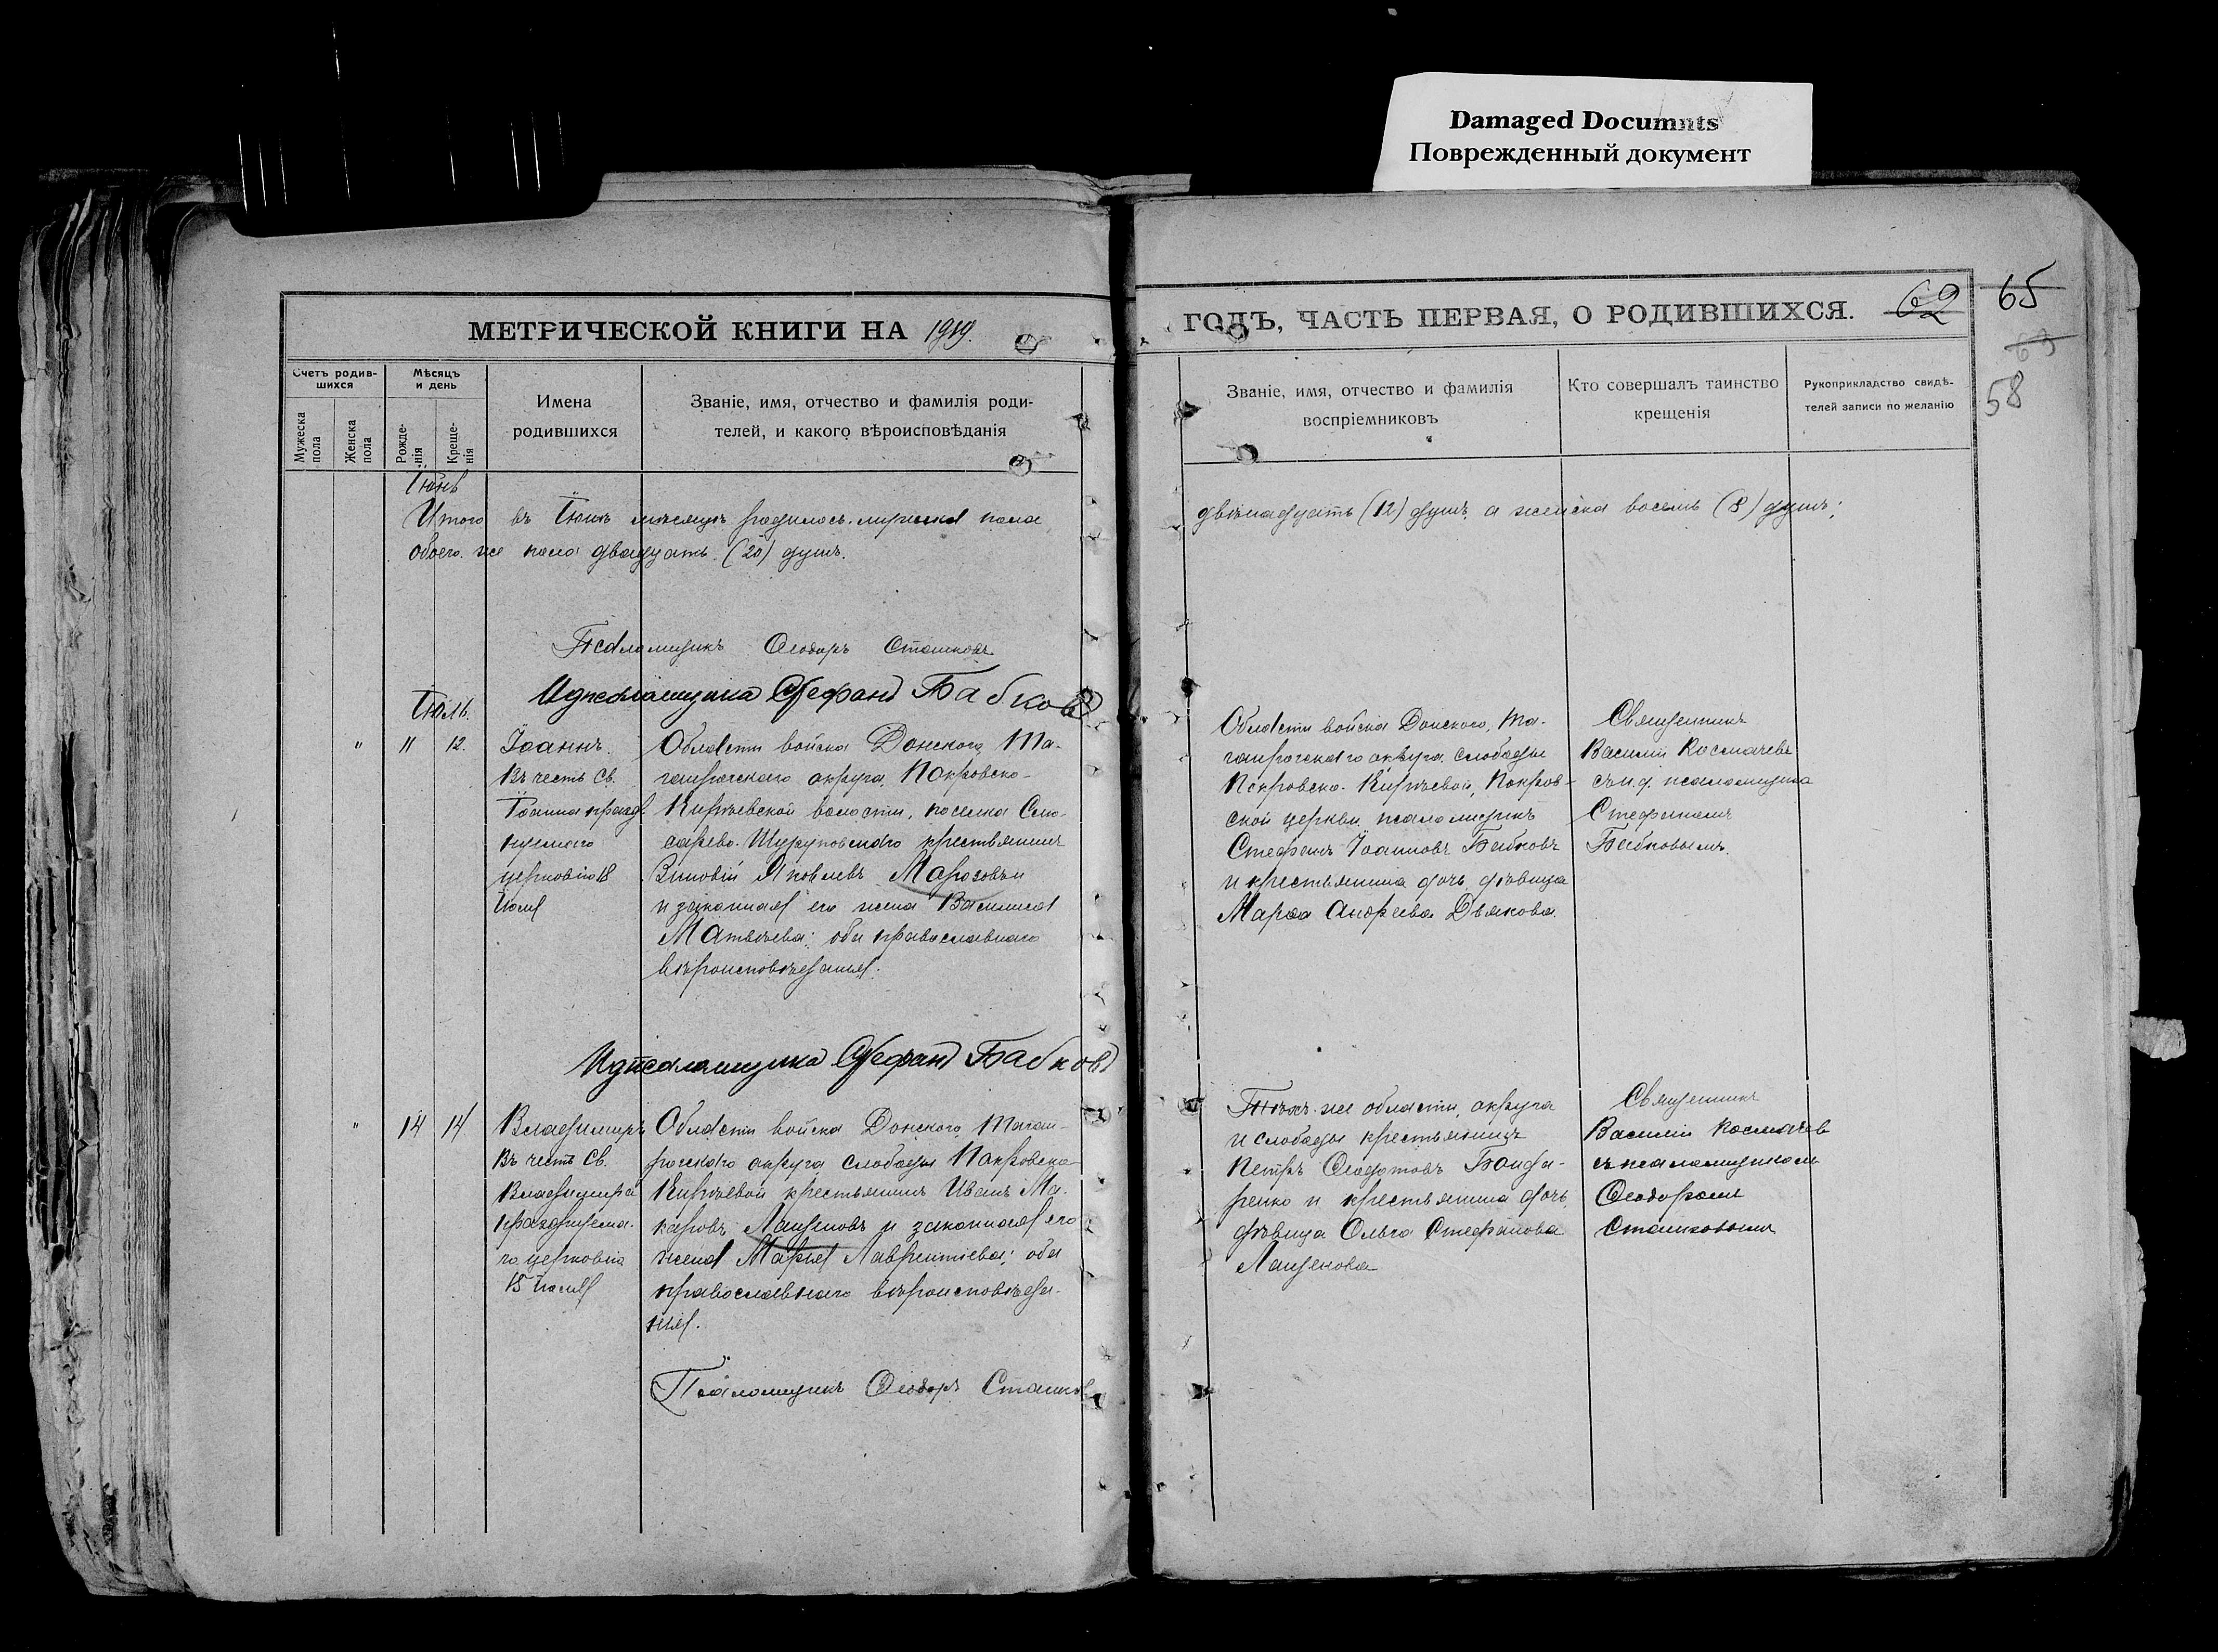 Damaged Documnts
Поврежденный документ
МЕТРИЧЕСКОЙ КНИГИ НА 1919.
ГОДЪ, ЧАСТЬ ПЕРВАЯ, О РОДИВШИХСЯ.
62
65
63
58
Счетъ родив-
шихся
Мѣсяцъ
и день
Мужеска
пола
Женска
пола
Рожде-
нія
Креще-
нія
Имена
родившихся
Званіе, имя, отчество и фамилія роди-
телей, и какого вѣроисповѣданія
Званіе, имя, отчество и фамилія
воспріемниковъ
Кто совершалъ таинство
крещенія
Рукоприкладство свидѣ-
телей записи по желанію
Іюнь
Итого въ Іюнѣ мѣсяцѣ родилось мужска пола
двѣнадцать (12) душъ, а женска восемь (8) душъ;
обоего же пола двадцать (20) душъ.
Псаломщикъ Ѳеодоръ Сташковъ
И д псаломщика Стефанъ Бабковъ
Іюль.
" 11 12.
Іоаннъ.
Въ честь Св.
Іоанна празд-
нуемаго
церковію 18
Іюля
Области войска Донского, Та-
ганрогскаго округа, Покровско-
Кирѣевской волости, поселка Слю-
сарево-Шурупов­скаго крестьянинъ
Зиновій Яковлевъ Морозовъ и
и законная его жена Василиса
Матвѣева; оба православнаго
вѣроисповѣданія.
Области войска Донского, Та-
ганрогскаго округа слободы
Покровско-Кирѣевой, Покров-
ской церкви псаломщикъ
Стефанъ Іоанновъ Бабковъ
и крестьянина дочь, дѣвица
Марѳа Андреева Дьякова.
Священникъ
Василій Космачевъ
съ и. д. псаломщика
Стефаномъ
Бабковымъ.
И д псаломщика Стефанъ Бабковъ
" 14 14
Владимиръ
Въ честь Св.
Владимира
празднуема-
го церковію
15 Іюля
Области войска Донского, Таган-
рогскаго округа слободы Покровско-
Кирѣевой крестьянинъ Иванъ Ма-
каровъ Лащеновъ и законная его
жена Марія Лаврентіева; оба
православнаго вѣроисповѣда-
нія.
Тѣхъ же области, округа
и слободы крестьянинъ
Петръ Ѳедотовъ Бонда-
ренко и крестьянина дочь,
дѣвица Ольга Стефанова
Лащенова
Священникъ
Василій Космачев
съ псаломщикомъ
Ѳеодоромъ
Сташковымъ
Псаломщикъ Ѳеодоръ Сташков